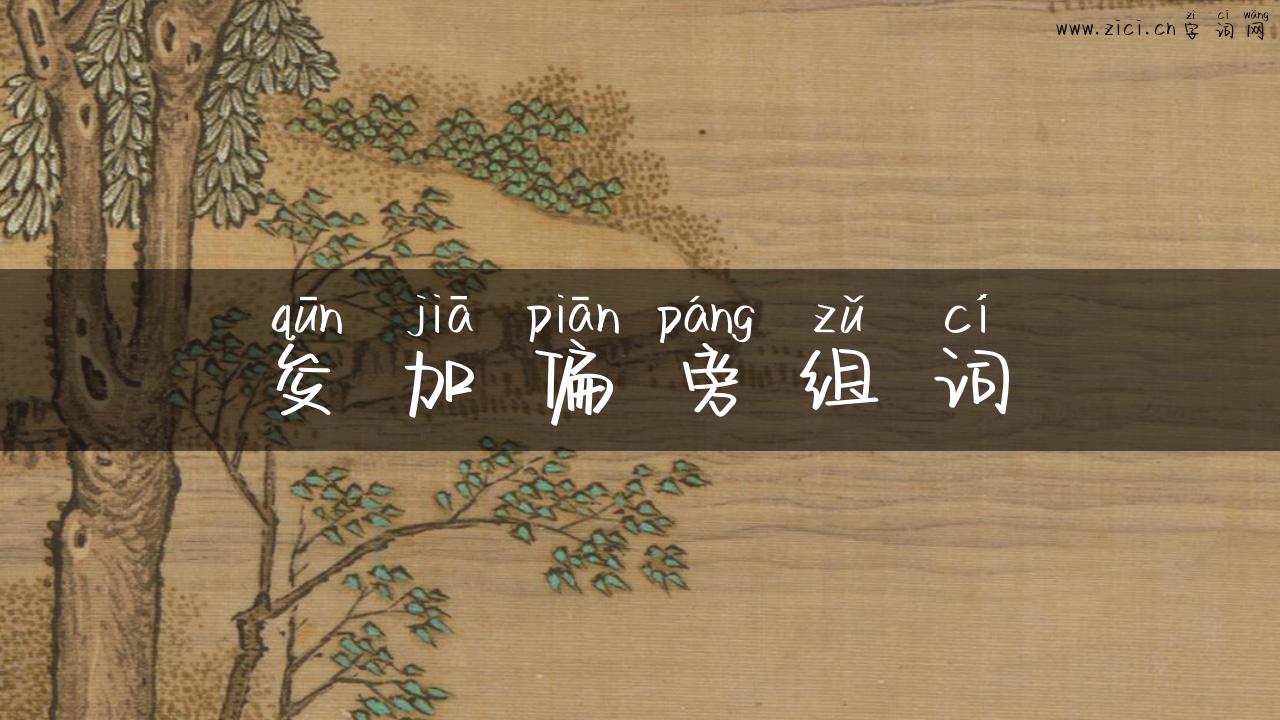 zì cí wǎng
www.zici.cn字词网
qūn jiā piān páng zǔ cí
夋加偏旁组词